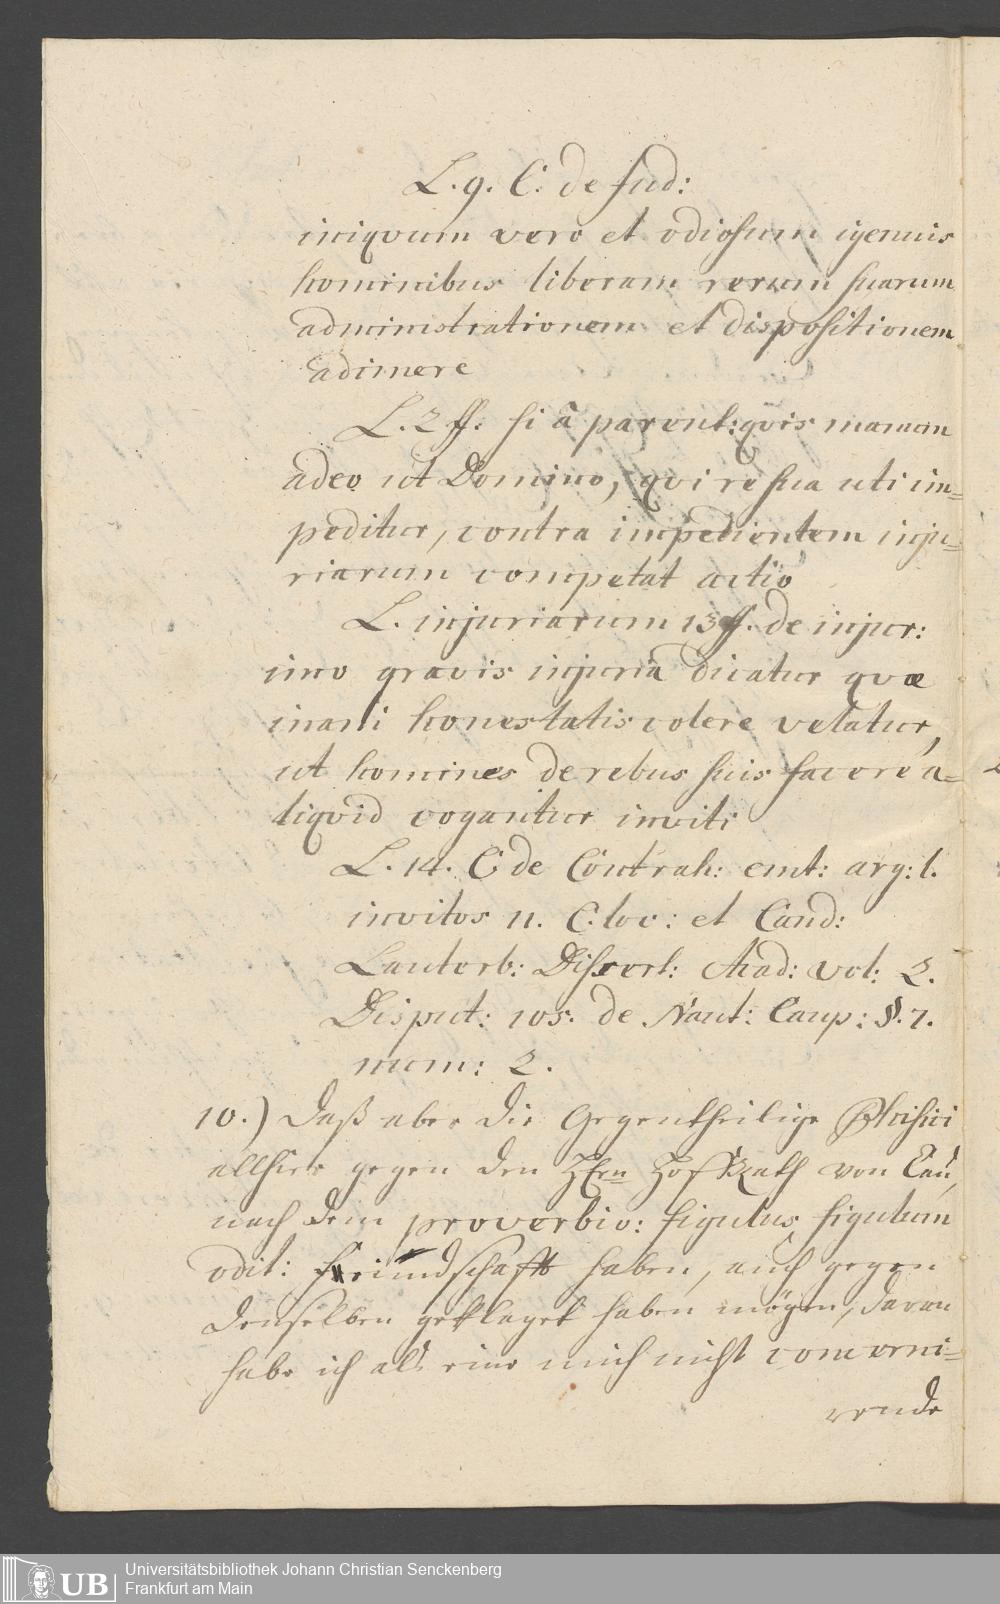 L. 9. C. de Jud:
iniqvum vero et odiosum igenuis
hominibus liberam rerum suarum
administrationem et dispositionem
adimere
L. 2 ff. si â parent: qvis manum
adeo ut Domino, qvi re sua uti im=
peditur, contra impedientem inju=
riarum competat actio
L. injuriarum 13 ff. de injur:
imo gravis injuria dicatur qvæ
inani honestatis colere velatur,
ut homines de rebus suis facere a=
liqvid cogantur inviti
L. 14. C de Contrah: emt: arg: l.
invitos 11. C. loc: et Cond:
Lauterb: Dissert: Acad: vol: 2.
Disput: 105. de Naut: Caup: §. 7.
num: 2.
10.) Daß aber die Gegentheilige Phisici
allhier gegen den HErrn Hof Rath von
nach dem proverbio: figulus figulum
odit: feindschafft haben, auch gegen
denselben geklaget haben mögen, daran
habe ich als eine mich nicht concerni=
rende
Universitätsbibliothek Johann Christian Senckenberg
UB Frankfurt am Main